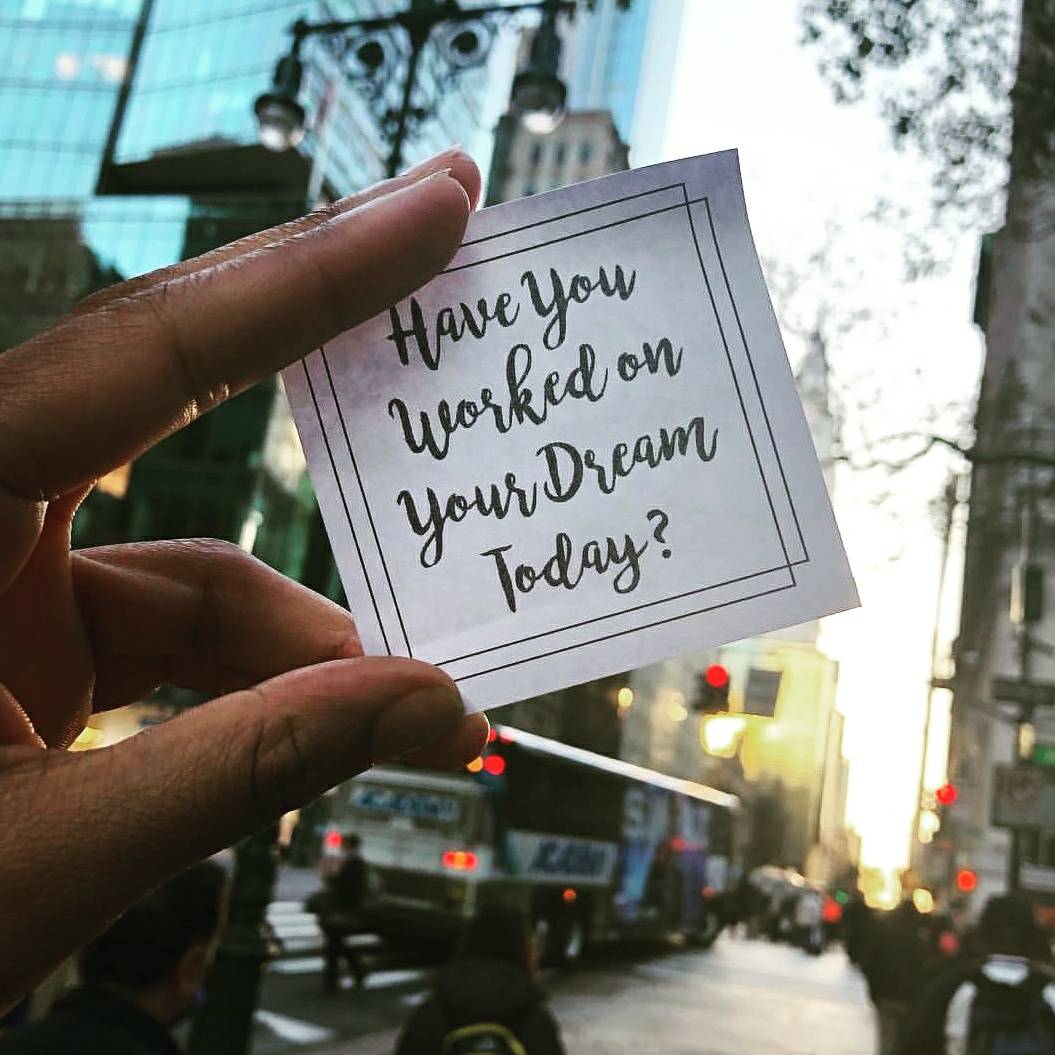 Have You
Worked on
Your Dream
Today?